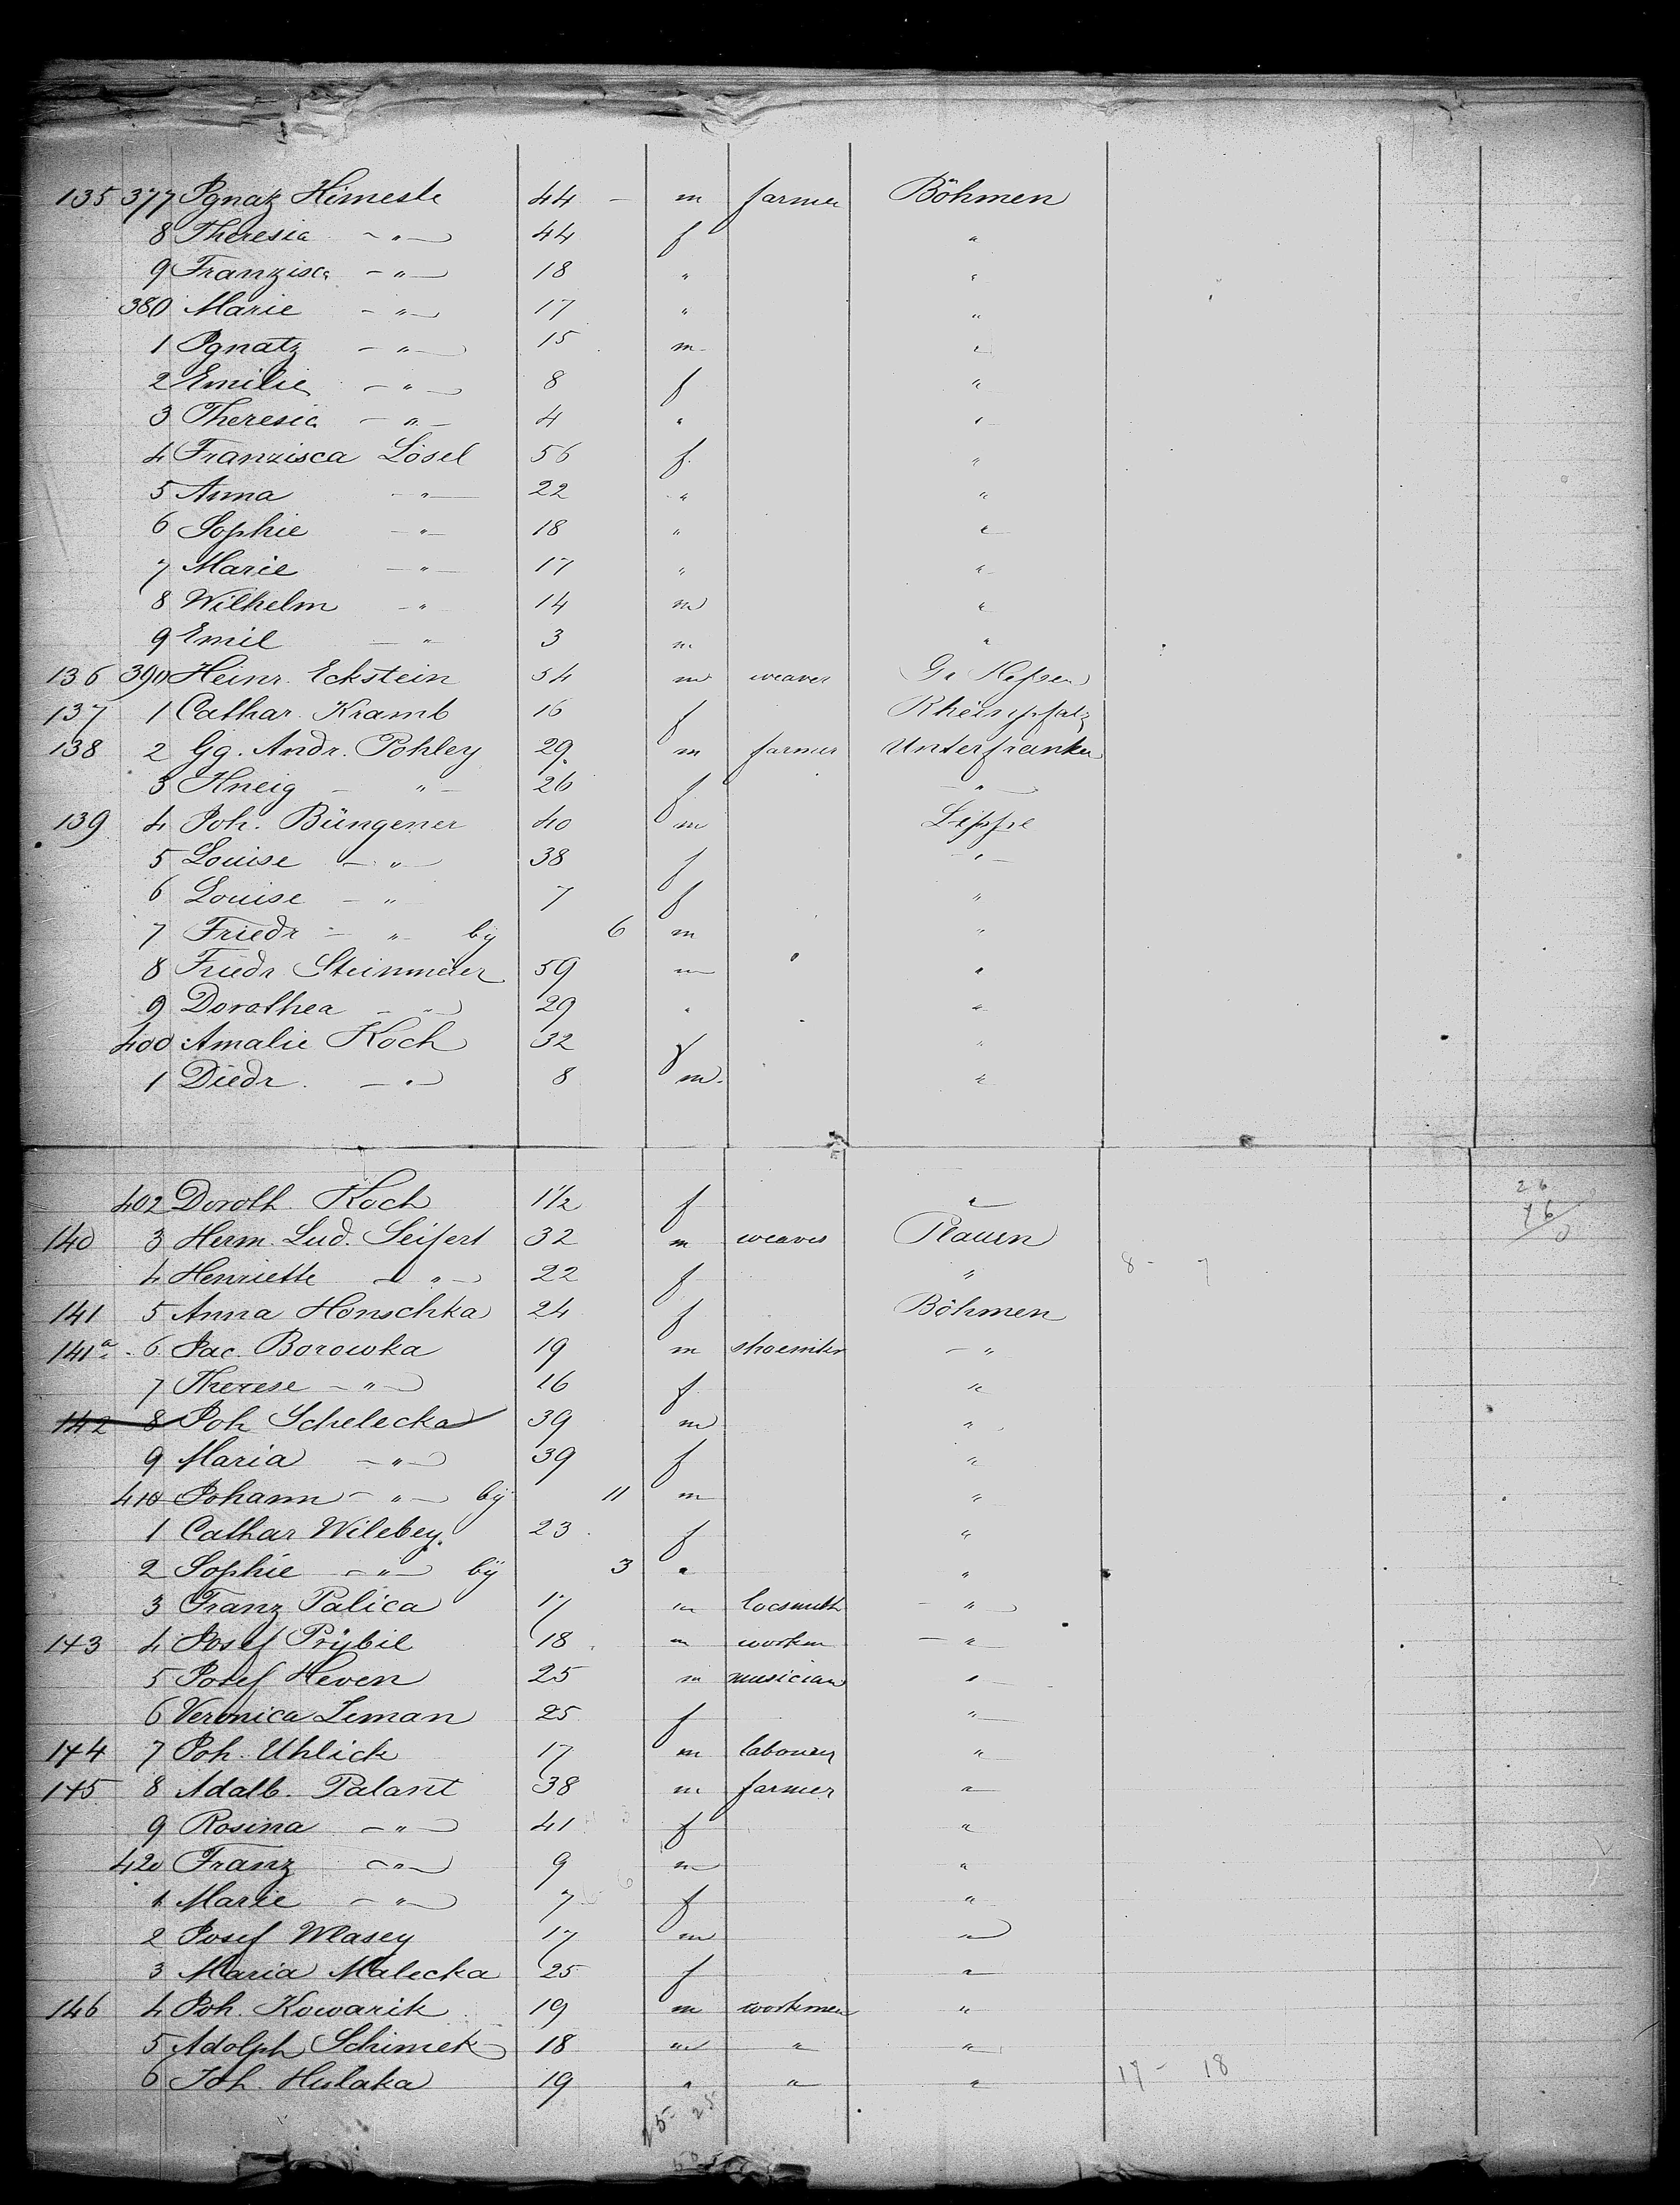 135 377 Ignatz Himesle 44 - m farmer Böhmen
8 Theresia - " - 44 f "
9 Franzisca - " - 18 " "
380 Marie - " - 17 " "
1 Ignatz - " - 15 m "
2 Emilie - " - 8 f "
3 Theresia - " - 4 " "
4 Franzisca Lösel 56 f "
5 Anna - " - 22 " "
6 Sophie - " - 18 " "
7 Marie - " - 17 " "
8 Wilhelm - " 14 m "
9 Emil - " 3 m "
136 390 Heinr. Eckstein 54 m weaver Gr Hessen
137 1 Cathar. Kramb 16 f Rheinpfalz
138 2 Gg. Andr. Pohley 29 m farmer Unterfranken
3 Kneig - " - 26 f - " -
139 4 Joh. Büngener 40 m Lippe
5 Louise - " - 38 f - " -
6 Louise - " 7 f "
7 Friedr - " - by 6 m "
8 Friedr Steinmeier 59 m "
9 Dorothea - " - 29 " "
400 Amalie Koch 32 f "
1 Diedr. - " - 8 m. "
402 Doroth. Koch 1 1/2 f "
26
140 3 Herm. Lud. Seifert 32 m weaver Plauen
4 Henriette - " - 22 f " 8 - 7
141 5 Anna Honschka 24 f Böhmen
141a. 6. Jac. Borowka 19 m shoemker - "
7 Therese - " - 16 f "
142 8 Joh Schelecka 39 m "
9 Maria - " - 39 f "
410 Johann - " - by 11 m "
1 Cathar Wilebey. 23 f "
2 Sophie - " - by 3 " "
3 Franz Palica 17 m locsmith - " -
143 4 Josef Prÿbil 18 m workm - " -
5 Josef Heven 25 m musician "
6 Veronica Zeman 25 f "
144 7 Joh. Uhlick 17 m labourer "
145 8 Adalb. Palant 38 m farmer "
9 Rosina - " - 41 f "
420 Franz - " - 9 m "
1 Marie - " - 7 f "
2 Josef Wlasey 17 m "
3 Maria Malecka 25 f "
146 4 Joh. Kowarik 19 m workmen "
5 Adolph Schimek 18 m " "
6 Joh. Hulaka 19 " " " 17 - 18
25 - 25